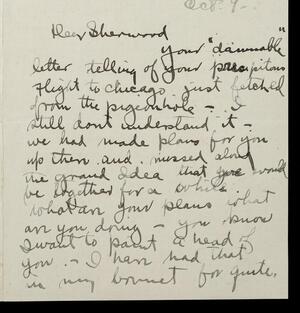 Oct. 9 -
Dear Sherwood
Your "damnable"
letter telling of your precipitous
flight to Chicago just fetched
from the pigeonhole - I
still dont understand it -
we had made plans for you
up there and missed along
the grand idea that you would
be together for a while.
what are your plans what
are you doing - you know
I want to paint a head of
you - I have had that
in my bonnet for quite